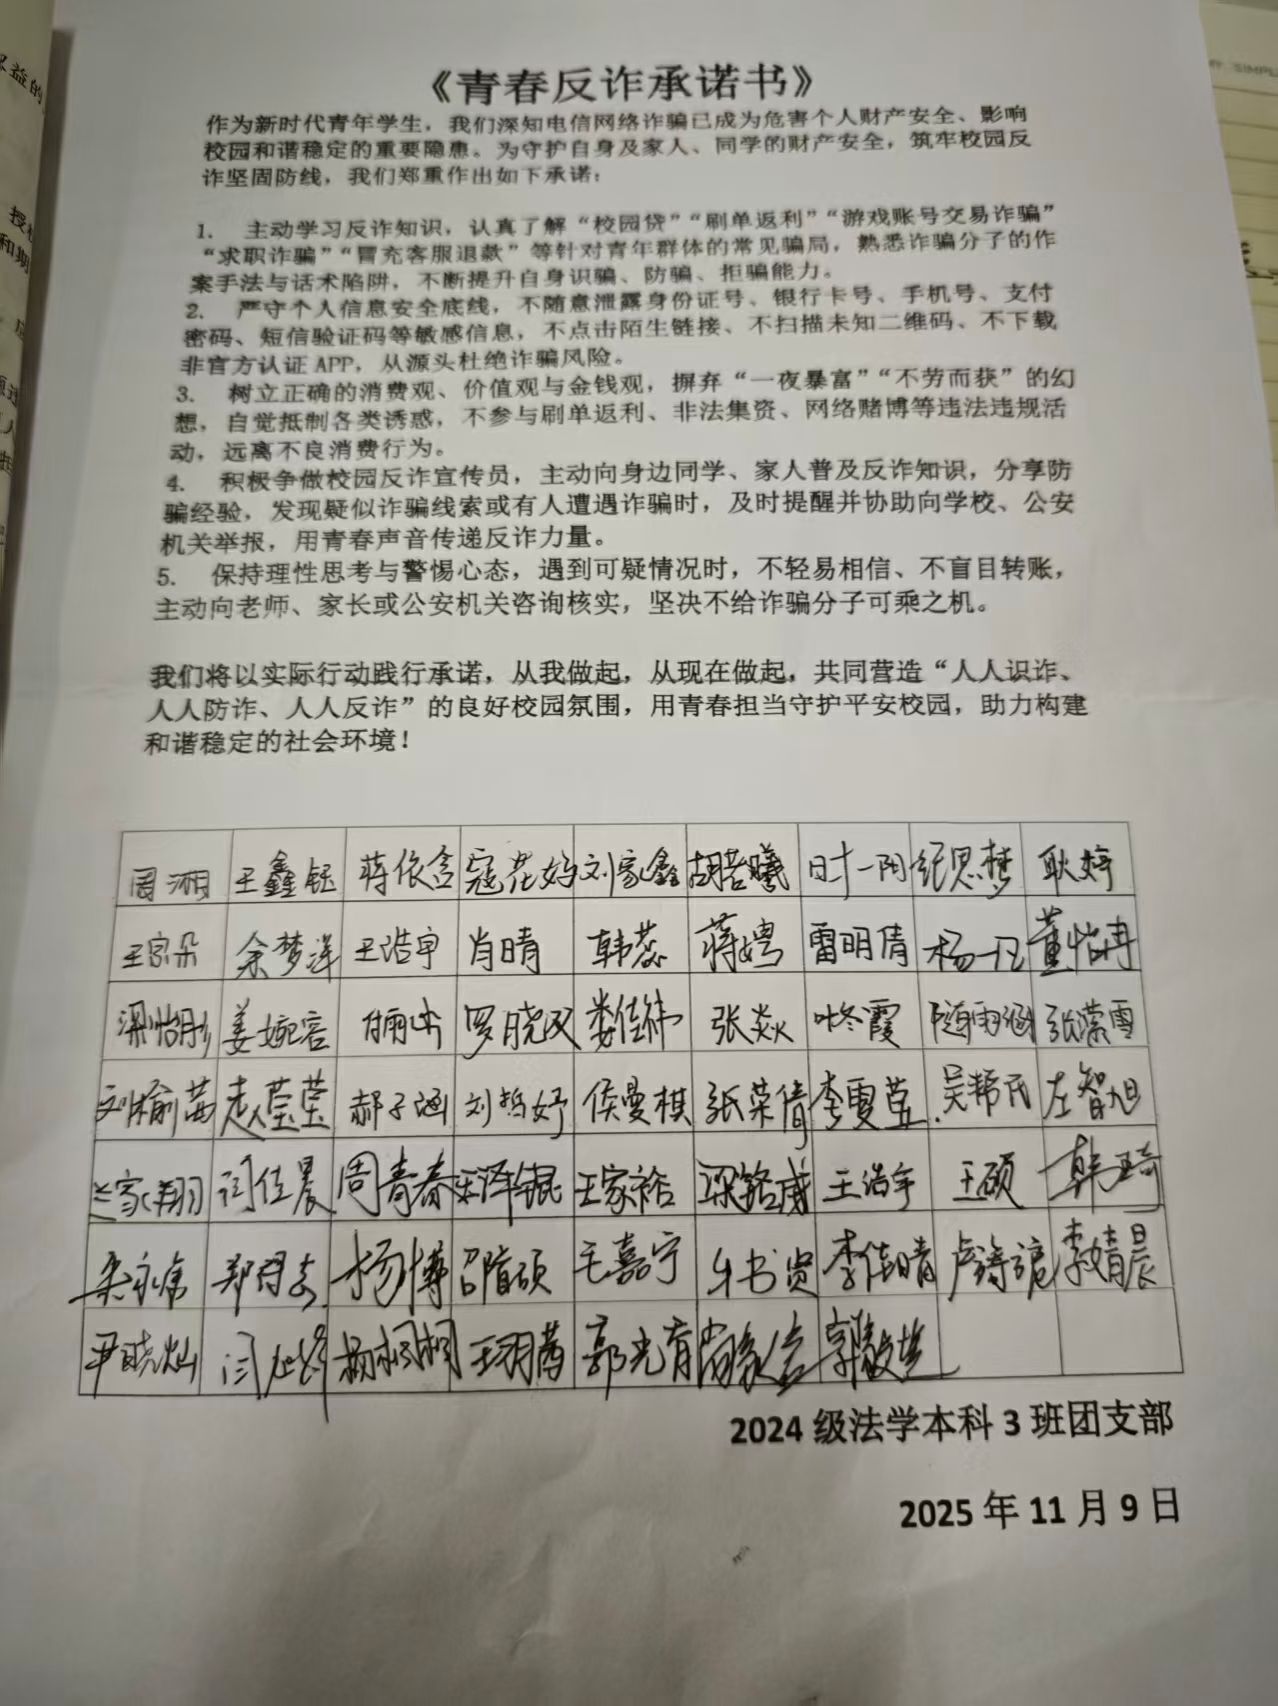 《青春反诈承诺书》
作为新时代青年学生，我们深知电信网络诈骗已成为危害个人财产安全、影响
校园和谐稳定的重要隐患。为守护自身及家人、同学的财产安全，筑牢校园反
诈坚固防线，我们郑重作出如下承诺：
1. 主动学习反诈知识，认真了解“校园贷”“刷单返利”“游戏账号交易诈骗”
“求职诈骗”“冒充客服退款”等针对青年群体的常见骗局，熟悉诈骗分子的作
案手法与话术陷阱，不断提升自身识骗、防骗、拒骗能力。
2. 严守个人信息安全底线，不随意泄露身份证号、银行卡号、手机号、支付
密码、短信验证码等敏感信息，不点击陌生链接、不扫描未知二维码、不下载
非官方认证 APP，从源头杜绝诈骗风险。
3. 树立正确的消费观、价值观与金钱观，摒弃“一夜暴富”“不劳而获”的幻
想，自觉抵制各类诱惑，不参与刷单返利、非法集资、网络赌博等违法违规活
动，远离不良消费行为。
4. 积极争做校园反诈宣传员，主动向身边同学、家人普及反诈知识，分享防
骗经验，发现疑似诈骗线索或有人遭遇诈骗时，及时提醒并协助向学校、公安
机关举报，用青春声音传递反诈力量。
5. 保持理性思考与警惕心态，遇到可疑情况时，不轻易相信、不盲目转账，
主动向老师、家长或公安机关咨询核实，坚决不给诈骗分子可乘之机。
我们将以实际行动践行承诺，从我做起，从现在做起，共同营造“人人识诈、
人人防诈、人人反诈”的良好校园氛围，用青春担当守护平安校园，助力构建
和谐稳定的社会环境！
周湘 王鑫钰 蒋依含 寇花妈 刘家鑫 胡若曦 时一阳 纪思梦 耿婷
王家朵 余梦洋 王浩宇 肖晴 韩蕊 蒋娉 雷明倩 董怡冉
梁怡彤 姜婉容 罗晓汉 娄佳祎 张焱 叶冬霞 随雨涵 张濛雪
刘榆茜 袁莹莹 郝子涵 刘哲妤 侯曼棋 张荣倩 李雯萱 左智旭
兰家翔 闫佳晨 周青春 宋泽锟 王家裕 梁铭威 王浩宇 王硕 韩琦
杨博 邵首硕 毛嘉宁 牛书贤 李佳晴 李婧晨
尹晓灿 王羽茜 郭光育
2024 级法学本科 3 班团支部
2025 年 11 月 9 日